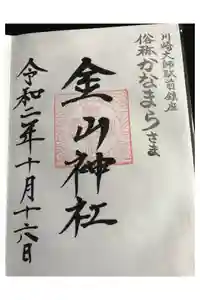 川崎大師駅前鎮座
俗称かなまらさま
金山神社
令和二年十月十六日